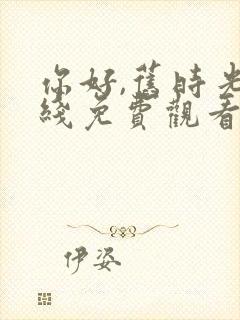 你好,舊時光
綫免費觀看
伊姿